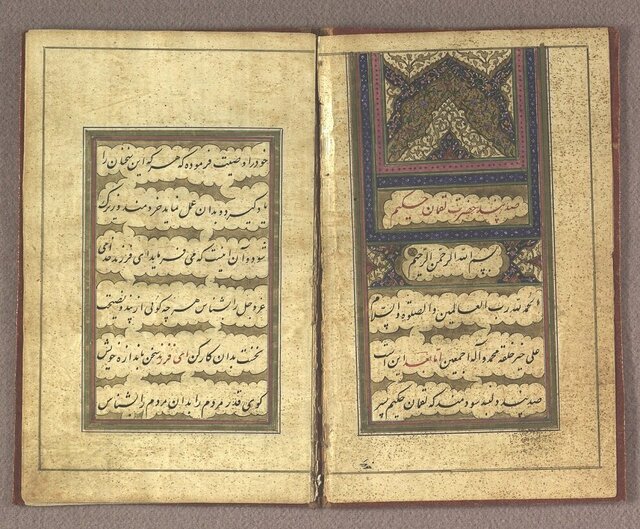 صد پند حضرت لقمان حکیم
بسم الله الرحمن الرحیم
الحمد لله رب العالمین و الصلوة و السلام
علی خیر خلقه محمد و آله اجمعین اما بعد این است
صد پند و لبند سودمند که لقمان حکیم پسر
خود را وصیت فرموده که هر که این سخنان را
یاد گیرد و بدان عمل نماید خردمند و بزرگ
شود و آن اینست که می فرماید ای فرزند خدای
عز و جل را بشناس هر چه گوئی از پند و نصیحت
نخست بدان کار کن ای فرزند سخن باندازه خویش
گوی قدر مردم را بدان مردم را بشناس